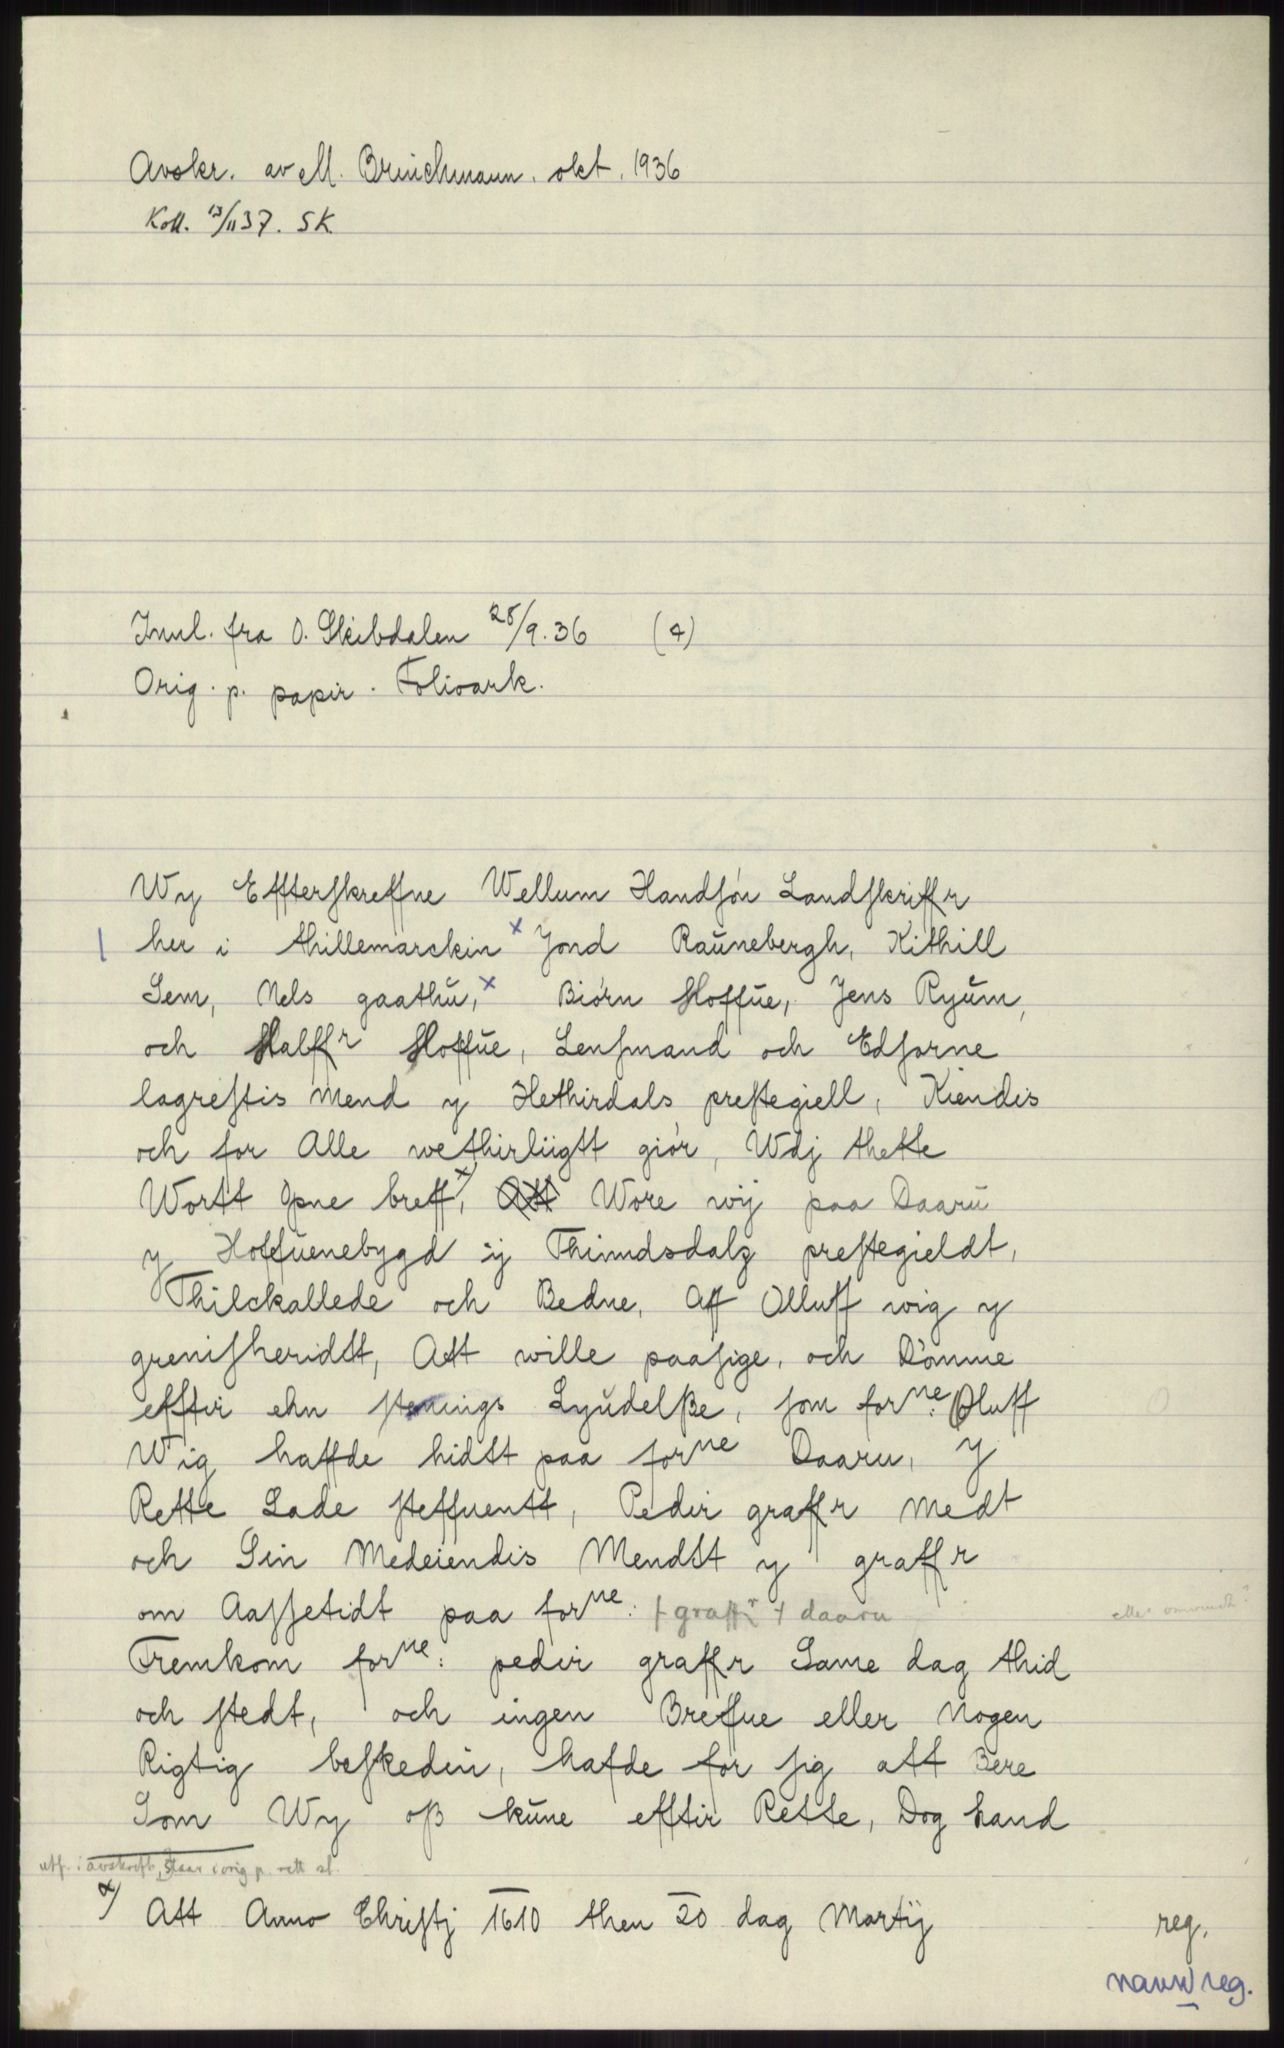 Avskr. av M. Brinchmann. okt. 1936
Koll. 13/11 37. SK.
Innl. fra O. Skibdalen 28/9.36 (4)
Orig. p. papir. Folioark.
Wy Effterſkreffne Wellum Handſón Landſkriffr
her i thillemarckin x Jond Raŭnebergh, Kithill
Sem, Nels gaathŭ, x Biórn Hoffŭe, Jens Ryŭm,
och Halffr Hoffŭe, Lenſmand och Edſorne
lagreſtis Mend y Hethirdals preſtegiell, Kiendis
och for Alle wethirliigtt giór, Wdj thette
Wortt Opne breff x), Att Wore wij paa Daarŭ
y Hoffŭenebygd ij Thinndsdalz preſtegieldt,
Thilckallede och Bedne, Aff Olluff wig y
greniſheridtt, Att wille paaſige, och Dómme
efftir ehn ſtenings Lyŭdelße, ſom forne: Oluff
Wig haffde hidtt paa forne Daaru, Y
Rette Lade ſteffuentt, Pedir graffr Medt
och Sin Medeiendis Mendtt y graffr
om Aaſſetidt paa forne: + graffr + daaru
Fremkom forne: pedir graffr Same dag thid
och ſtedt, och ingen Breffue eller Nogen
Rigtig beſkedin, hafde for ſig att Bere
Som Wy oß kŭne efftir Rette, Dog hand
utf. i avskrift, staar i orig p. rett st.
x) Att Anno Chriſtj 1610 then 20 dag Martij
reg.
navn reg.